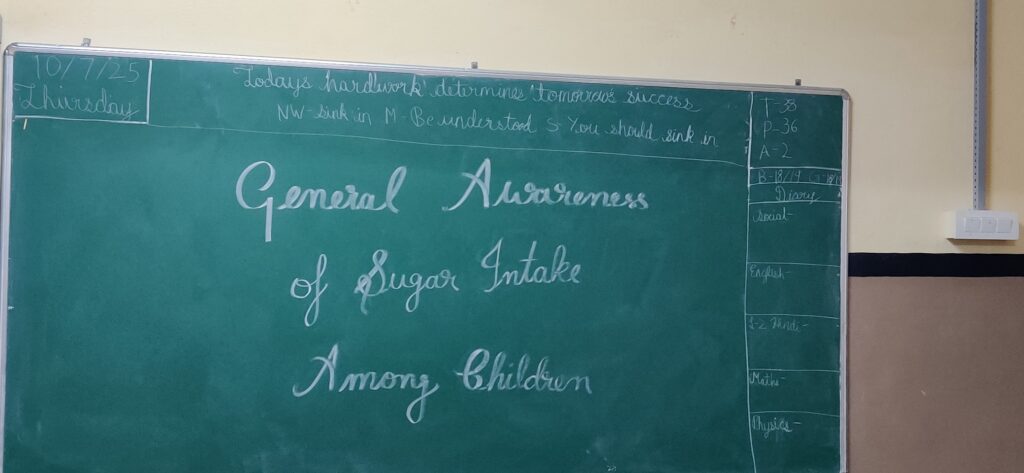 10/7/25
Thursday
Todays hardwork determine tomorrows success
NW-sink in M-Be understood S-You should sink in
General Awareness
of Sugar Intake
Among Children
T-38
P-36
A-2
B-18/19 G-18/19
Diary
Social-
English-
Hindi-
Maths-
Physics-